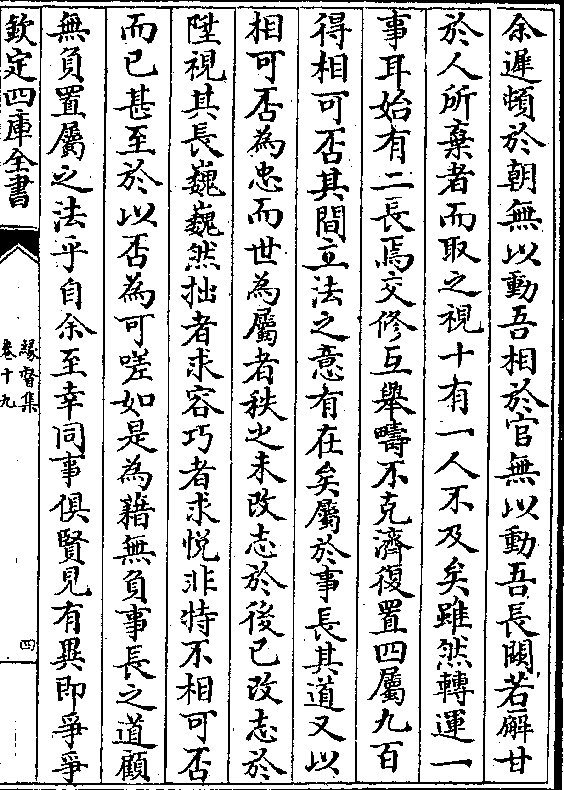 余遲頓於朝無以動吾相於官無以動吾長闕若廨甘
於人所棄者而取之視十有一人不及矣雖然轉運一
事耳始有二長焉交修互舉疇不克濟復置四屬九百
得相可否其間立法之意有在矣屬於事長其道又以
相可否為忠而世為屬者秩之未改志於後已改志於
陞視其長巍巍然拙者求容巧者求悦非特不相可否
而已甚至於以否為可嗟如是為藉無負事長之道顧
無負置屬之法乎自余至幸同事俱賢見有異即爭爭
欽定四庫全書
緣督集
卷十九
四